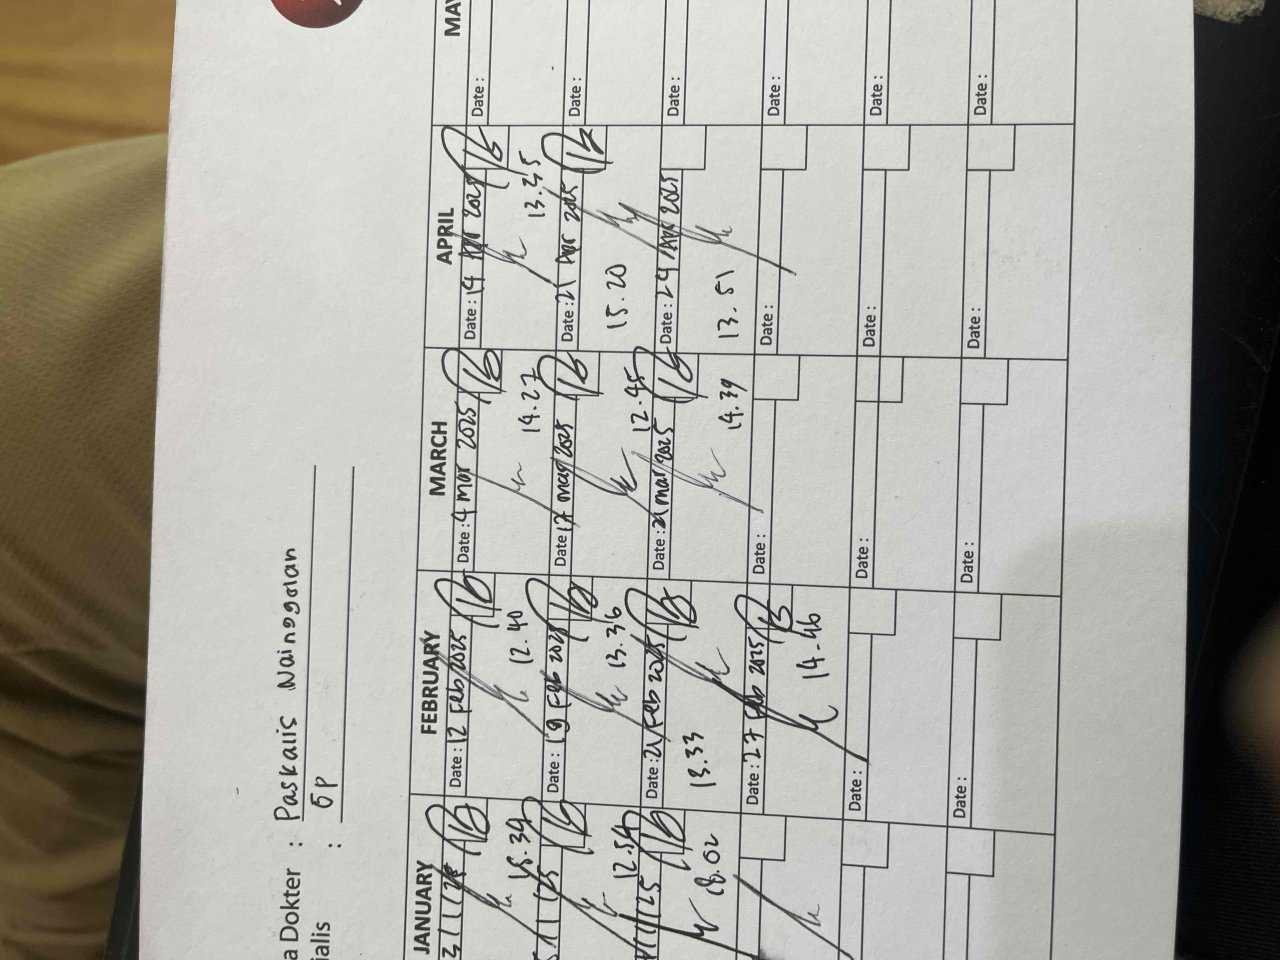 a Dokter : Paskalis Nainggolan
ialis : Sp
JANUARY FEBRUARY MARCH APRIL MAY
Date : 12 Feb 2025 Date : 4 Mar 2025 Date : 14 Apr 2025 Date :
18.34 12.40 14.27 13.35
Date : 19 Feb 2025 Date : 17 mar 2025 Date : 21 Apr 2025 Date :
12.54 13.36 12.45 15.20
Date : 21 Feb 2025 Date : 21 mar 2025 Date : 29 Apr 2025 Date :
18.02 13.33 14.39 13.51
Date : 27 Feb 2025 Date : Date : Date :
14.46
Date : Date : Date : Date :
Date : Date : Date : Date :